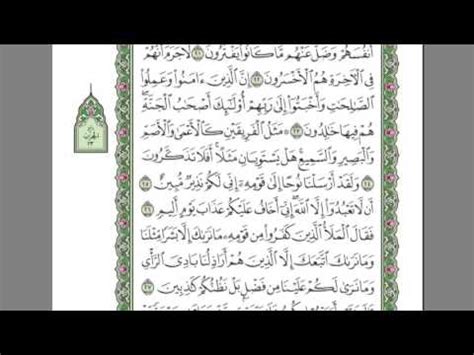 أَنفُسَهُمْ وَضَلَّ عَنْهُم مَّا كَانُوا۟ يَفْتَرُونَ ٢١ لَا جَرَمَ أَنَّهُمْ
فِى ٱلْـَٔاخِرَةِ هُمُ ٱلْأَخْسَرُونَ ٢٢ إِنَّ ٱلَّذِينَ ءَامَنُوا۟ وَعَمِلُوا۟
ٱلصَّـٰلِحَـٰتِ وَأَخْبَتُوٓا۟ إِلَىٰ رَبِّهِمْ أُو۟لَـٰٓئِكَ أَصْحَـٰبُ ٱلْجَنَّةِ
هُمْ فِيهَا خَـٰلِدُونَ ٢٣ مَثَلُ ٱلْفَرِيقَيْنِ كَٱلْأَعْمَىٰ وَٱلْأَصَمِّ
وَٱلْبَصِيرِ وَٱلسَّمِيعِ هَلْ يَسْتَوِيَانِ مَثَلًا أَفَلَا تَذَكَّرُونَ
٢٤ وَلَقَدْ أَرْسَلْنَا نُوحًا إِلَىٰ قَوْمِهِۦٓ إِنِّى لَكُمْ نَذِيرٌ مُّبِينٌ ٢٥
أَن لَّا تَعْبُدُوٓا۟ إِلَّا ٱللَّهَ إِنِّىٓ أَخَافُ عَلَيْكُمْ عَذَابَ يَوْمٍ أَلِيمٍ ٢٦
فَقَالَ ٱلْمَلَأُ ٱلَّذِينَ كَفَرُوا۟ مِن قَوْمِهِۦ مَا نَرَىٰكَ إِلَّا بَشَرًا مِّثْلَنَا
وَمَا نَرَىٰكَ ٱتَّبَعَكَ إِلَّا ٱلَّذِينَ هُمْ أَرَاذِلُنَا بَادِىَ ٱلرَّأْىِ
وَمَا نَرَىٰ لَكُمْ عَلَيْنَا مِن فَضْلٍۭ بَلْ نَظُنُّكُمْ كَـٰذِبِينَ ٢٧